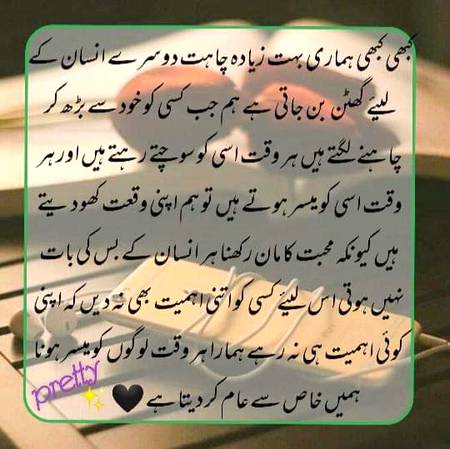 کبھی کبھی ہماری بہت زیادہ چاہت دوسرے انسان کے
لیئے گھٹن بن جاتی ہے ہم جب کسی کو خود سے بڑھ کر
چاہنے لگتے ہیں ہر وقت اسی کو سوچتے رہتے ہیں اور ہر
وقت اسی کو میسر ہوتے ہیں تو ہم اپنی وقعت کھو دیتے
ہیں کیونکہ محبت کا مان رکھنا ہر انسان کے بس کی بات
نہیں ہوتی اس لیئے کسی کو اتنی اہمیت بھی نہ دیں کہ اپنی
کوئی اہمیت ہی نہ رہے ہمارا ہر وقت لوگوں کو میسر ہونا
ہمیں خاص سے عام کر دیتا ہے 🖤
pretty